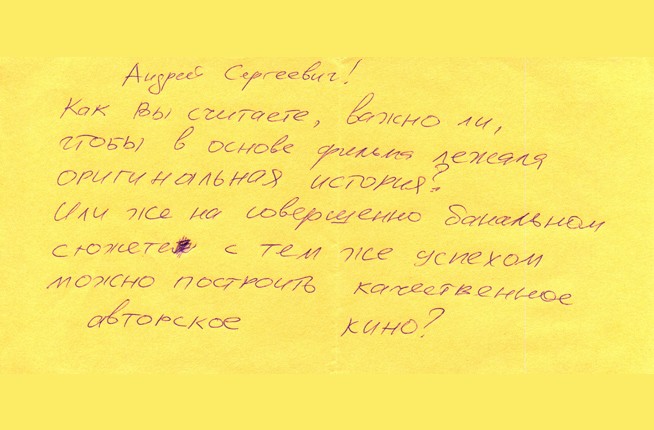 Андрей Сергеевич!
Как Вы считаете, важно ли,
чтобы в основе фильма лежала
оригинальная история?
Или же на совершенно банальном
сюжете с тем же успехом
можно построить качественное
авторское кино?